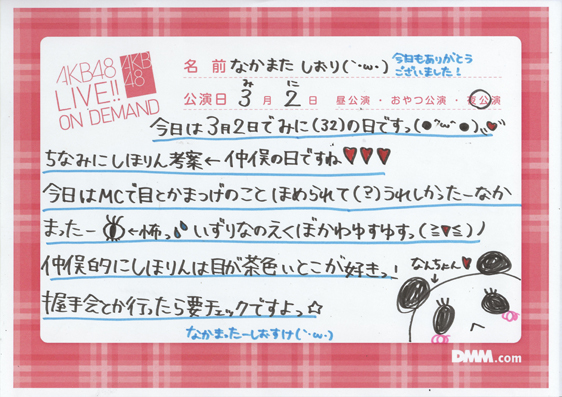 AKB48
LIVE!!
ON DEMAND
AKB
48
名 前 なかまた しおり(`･ω･)
今日もありがとう
ございました!
み に
公演日 3 月 2 日 昼公演・おやつ公演・夜公演
今日は3月2日でみに(32)の日ですっ(●^ω^●)♥
ちなみにしほりん考案←仲俣の日ですね♥♥♥
今日はMCで目とかまつげのこと ほめられて(?)うれしかったーなか
まったー ←怖っ いずりなのえくぼかわゆすゆすっ(≧♥≦)ノ
仲俣的にしほりんは目が茶色いとこが好きっ!
なんちょん♥
↓
握手会とか行ったら要チェックですよっ☆
なかまったーしおすけ(`･ω･)
DMM.com